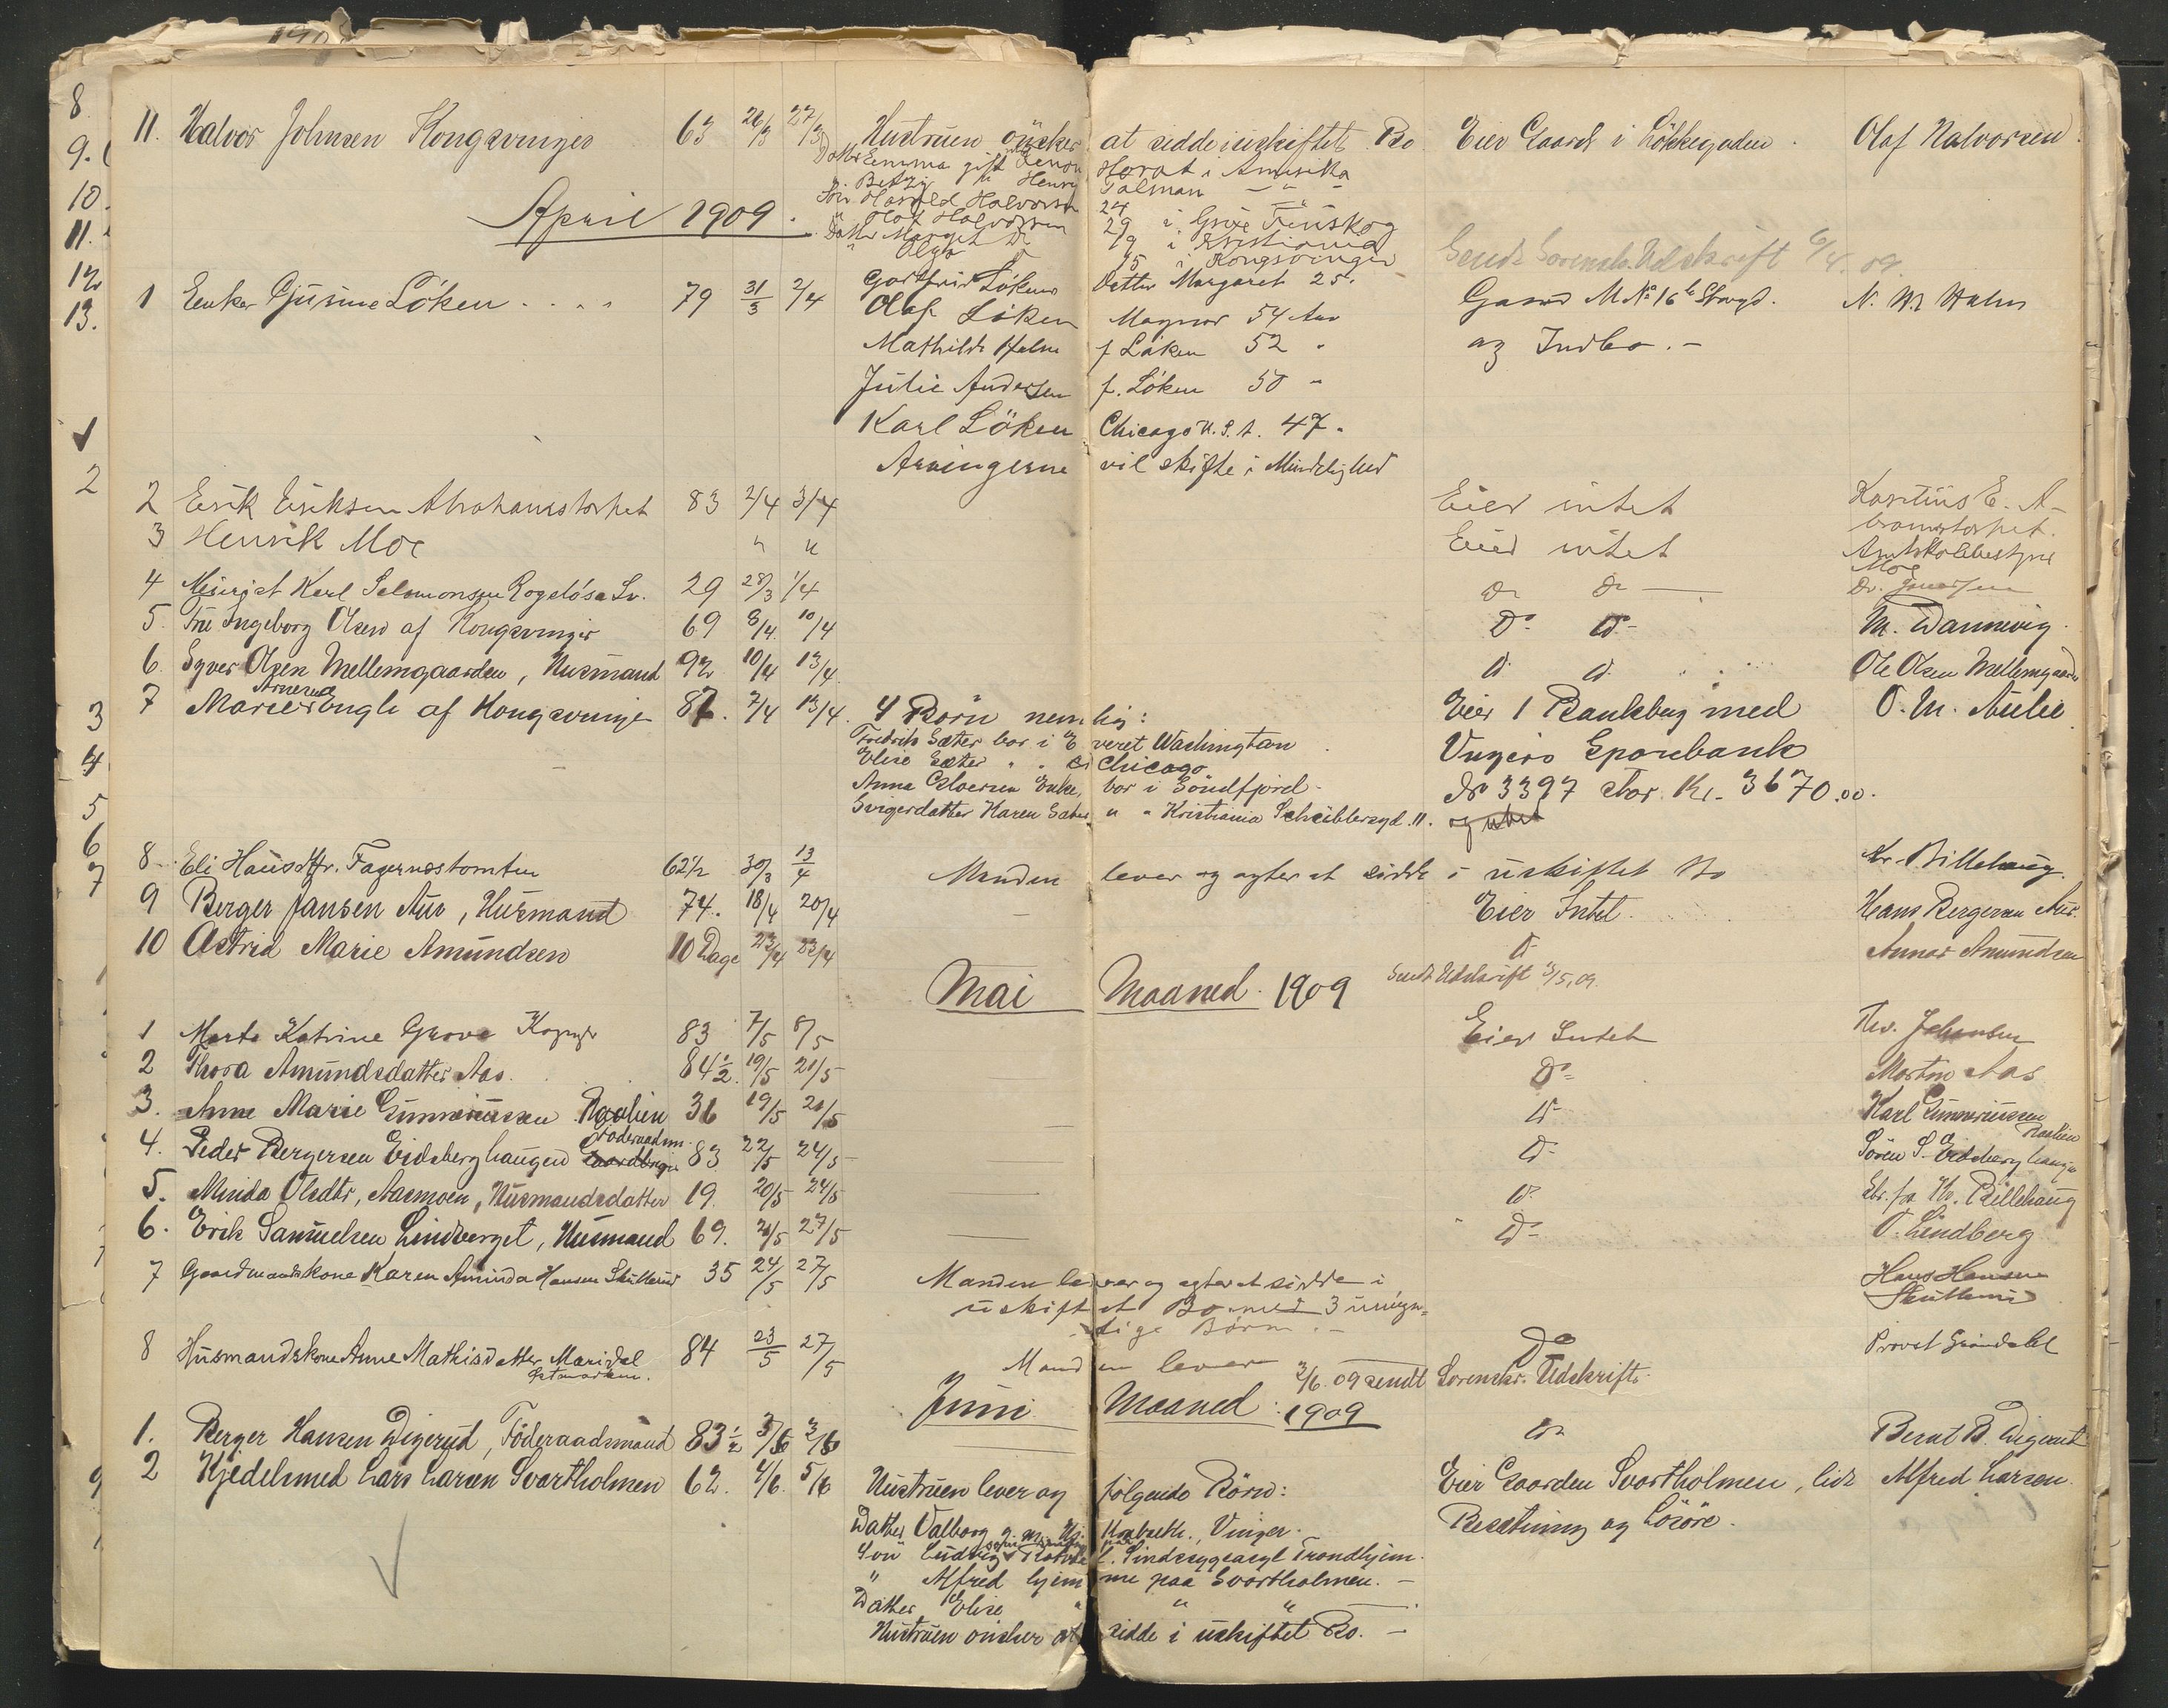 11. Halvor Johnsen Kongsvinger 63 26/3 27/3 Hustruen önsker at sidde i uskiftet Bo Eier Gaard i Lökkegaden. Olaf Halvorsen
Datter Emma gift Horat i Amerika
" Betzy " Henry Talman — " —
Sön Harald Halvorsen 24
" Olaf Halvorsen 29 i Grue Finskog
Datter Margit Do 19 i Kristiania
" Olga Do 15 i Kongsvinger
April 1909.
Sendt Sorenskr. Udskrift 6/4. 09.
1 Enke Gusine Löken 79 31/3 2/4 Gotfrid Lökens Datter Margaret 25. Gaard M No 16 b Storgd. N. M. Halm
Olaf Löken Magnor 54 Aar
Mathilde Halm f Löken 52 " og Indbo. -
Julie Andersen f. Löken 50 "
Karl Löken Chicago U.S.A. 47 "
Arvingerne vil skifte i Mindelighed
2 Erik Eriksen Abrahamstorpet 83 2/4 3/4 Eier intet E. A-
bramstorpet.
3 Henrik Moe " " Eier intet Amtskolebestyrer
Moe
4 Karl Salomonsen 29 28/3 1/4 Do Do — Dr.
5. Frü Ingeborg Olsen af Kongsvinger 69 8/4. 10/4 Do Do - M. Dannevig.
6. Syver Olsen Mellemgaarden, Husmand 92 10/4 13/4. D. D. Ole Olsen Mellemgaarden
7 Marie Engh af Kongsvinger 82. 7/4 13/4. 4 Börn nemlig: Eier 1 Bankbog med O. M. Aulie
Fredrik Sæter bor i Everet Washington
Vingers Sparebank
Elise Sæter " . Chicago
Anna Enke, bor i Söndfjord. No 3397 stor Kr. 3670.00.
Svigerdatter Karen Sæter " " Kristiania Schüblersgd. 11. og intet
8. Eli Hansdtr. Fagernestomten 62½ 30/3 13/4 Manden lever og agter at sidde i uskiftet Bo Kr. Billehaug.
9 Berger Jansen Aur, Husmand 74. 18/4 20/4 — Eier Intet. Hans Bergersen Aur.
10 Astrid Marie Amundsen 10 Dage 23/4 23/4 D Annar Amundsen
Mai Maaned. 1909 Sendt Udskrift 3/5.09.
1 Marte Katrine Grove 83 7/5 8/5 Eier Intet Johansen
2 Thora Amundsdatter Aas. 84½. 19/5 21/5 Do - Morten Aas
3. Anne Marie Gunneriussen Raalien 36 19/5 21/5 — D - Karl Gunneriussen
Raalien
Föderaadsm.
4. Peder Bergersen Eidsberghaugen 83. 22/5 24/5 — D - Sören P. Eidsberghaugen
5. Minda Olsdtr, Aasmoen, Husmandsdatter 19. 20/5 24/5 — D. Kr. Billehaug
6. Erik Samuelsen Lindberget, Husmand 69. 21/5 27/5 — Do - O. Lindberg
7 Gaardmandskone Karen Aminda Hansen Skullerud 35 24/5 27/5 Manden lever og agter at sidde i Hans Hansen
uskiftet Bo med 3 umyn=
dige Börn. -
8 Husmandskone Anne Mathisdatter Maridal 84 23/5 27/5 Manden lever Do Provst Gröndahl
Östmarken.
2/6. 09 sendt Sorenskr. Udskrift.
Juni Maaned. 1909
1. Berger Hansen Digerud, Föderaadsmand 83½ 3/6 3/6 Do Bernt B. Digerud
2 Kjedelsmed Lars Larsen Svartholmen 62. 4/6. 5/6 Hustruen lever og følgende Börn: Eier Gaarden Svartholmen, lidt Alfred Larsen.
Datter Valborg g. m. Vinger. Besætning og Lösöre.
Sön Ludvig Sindssygeasyl Trondhjem.
" Alfred hjemme paa Svartholmen. -
Datter Elise " " " — .
Hustruen önsker at sidde i uskiftet Bo. -
8.
9.
10.
11.
12
13.
1
2
3
4
5
6
7
9